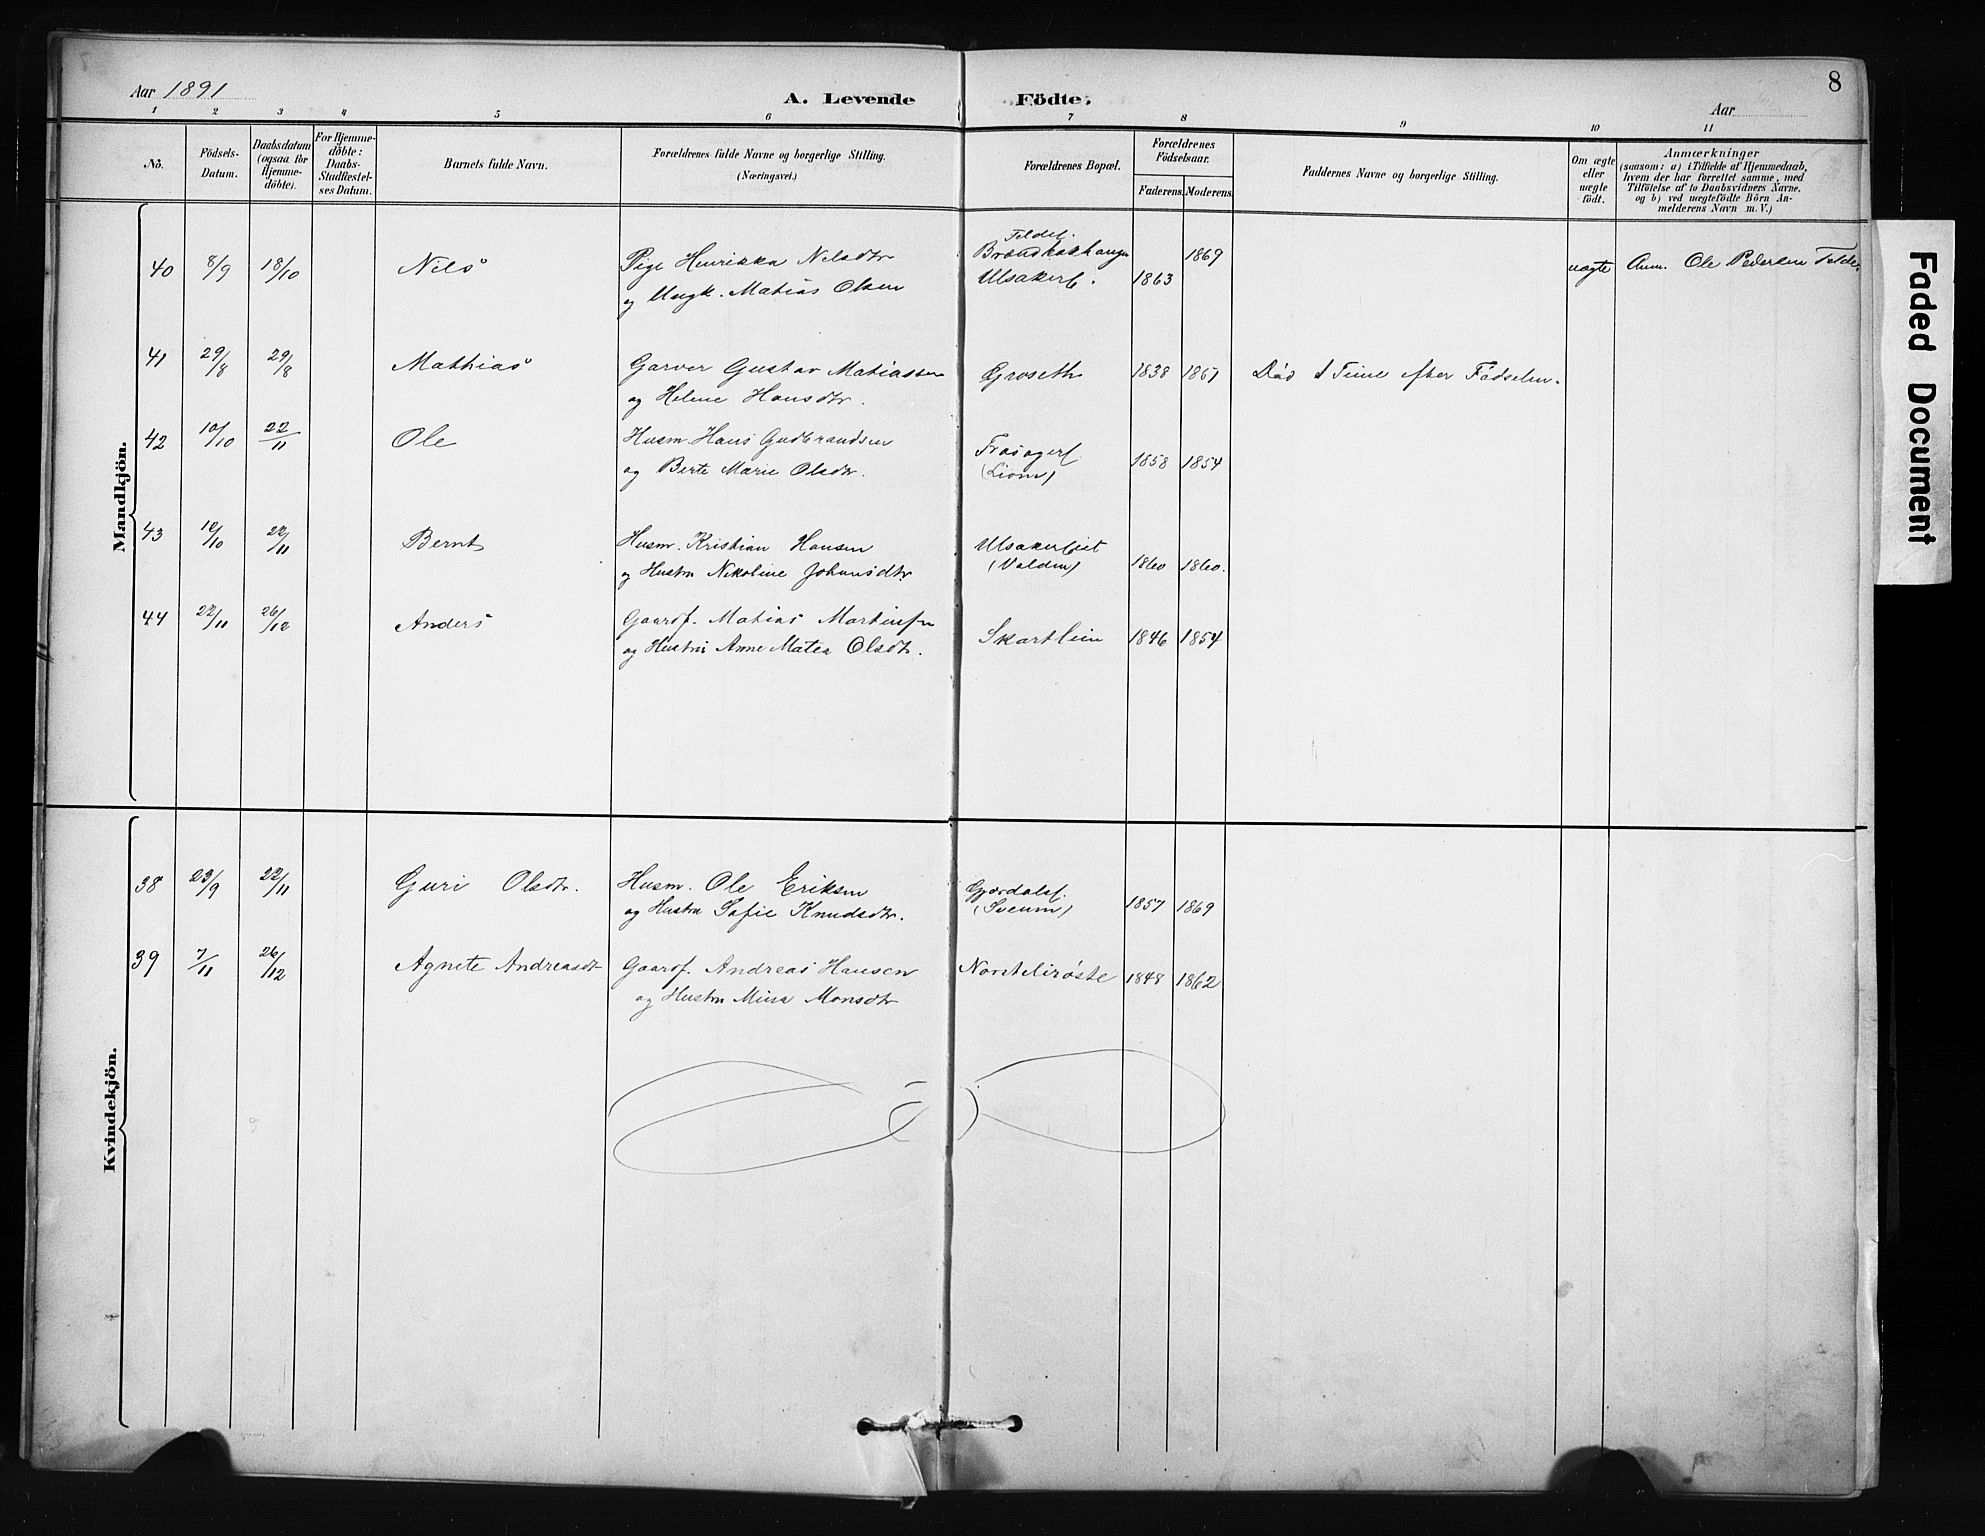 8
Aar 1891
A. Levende Födte.
Aar
1 2 3 4 5 6 7 8 9 10 11
No.
Födsels-Datum.
Daabsdatum (ogsaa for Hjemme-döbte).
For Hjemme-döbte: Daabs-Stadfæstel-ses Datum.
Barnets fulde Navn.
Forældrenes fulde Navne og borgerlige Stilling.
(Næringsvei.)
Forældrenes Bopæl.
Forældrenes Födselsaar.
Faderens. Moderens.
Faddernes Navne og borgerlige Stilling.
Om ægte eller uægte födt.
Anmærkninger
(saasom: a) i Tilfælde af Hjemmedaab,
hvem der har forrettet samme, med
Tilföielse af to Daabsvidners Navne.
og b) ved uægtefödte Börn An-
melderens Navn m. V.)
Mandkjön.
40 8/9 18/10 Nils Pige Henrikka Nilsdtr 1869 uægte Anm. Ole Pedersen
og Ungk. Matias Olsen Ulsakerf. 1863
41 29/8 29/8 Mathias Garver Gustav Matiassen Groseth 1838 1867 Död 1 Time efter Födselen.
og Helene Hansdtr.
42 10/10 22/11 Ole Husm. Hans Gudbrandsen 1858 1854
og Berte Marie Olsdtr.
43 10/10 22/11 Bernt Husm. Kristian Hansen 1860 1860.
og Hustru Nikoline Johansdtr.
44 22/11 26/12 Anders Gaardf. Matias Martinsen Skartlien 1846 1854
og Hustru Anne Matea Olsdtr.
Kvindekjön.
38 23/9 22/11 Guri Olsdtr. Husm. Ole Eriksen 1857 1869
og Hustru Sofie Knudsdtr. (Sveum)
39 7/11 26/12 Agnete Andreasdtr Gaardf. Andreas Hansen 1848 1862
og Hustru Mina Monsdtr
Faded Document